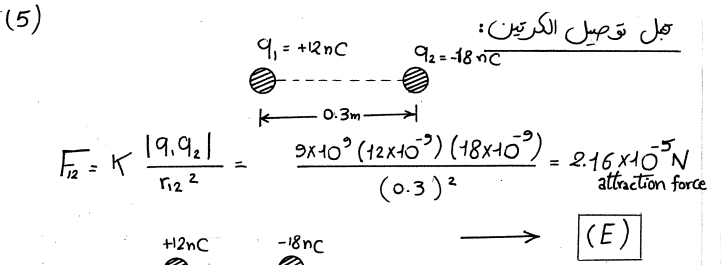 (5)
قبل توصيل الكرتين:
q₁ = +12nC
q₂ = -18nC
0.3m
F₁₂ = K |q₁q₂| / r₁₂² = 9×10⁹ (12×10⁻⁹) (18×10⁻⁹) / (0.3)² = 2.16×10⁻⁵ N
attraction force
+12nC -18nC
(E)